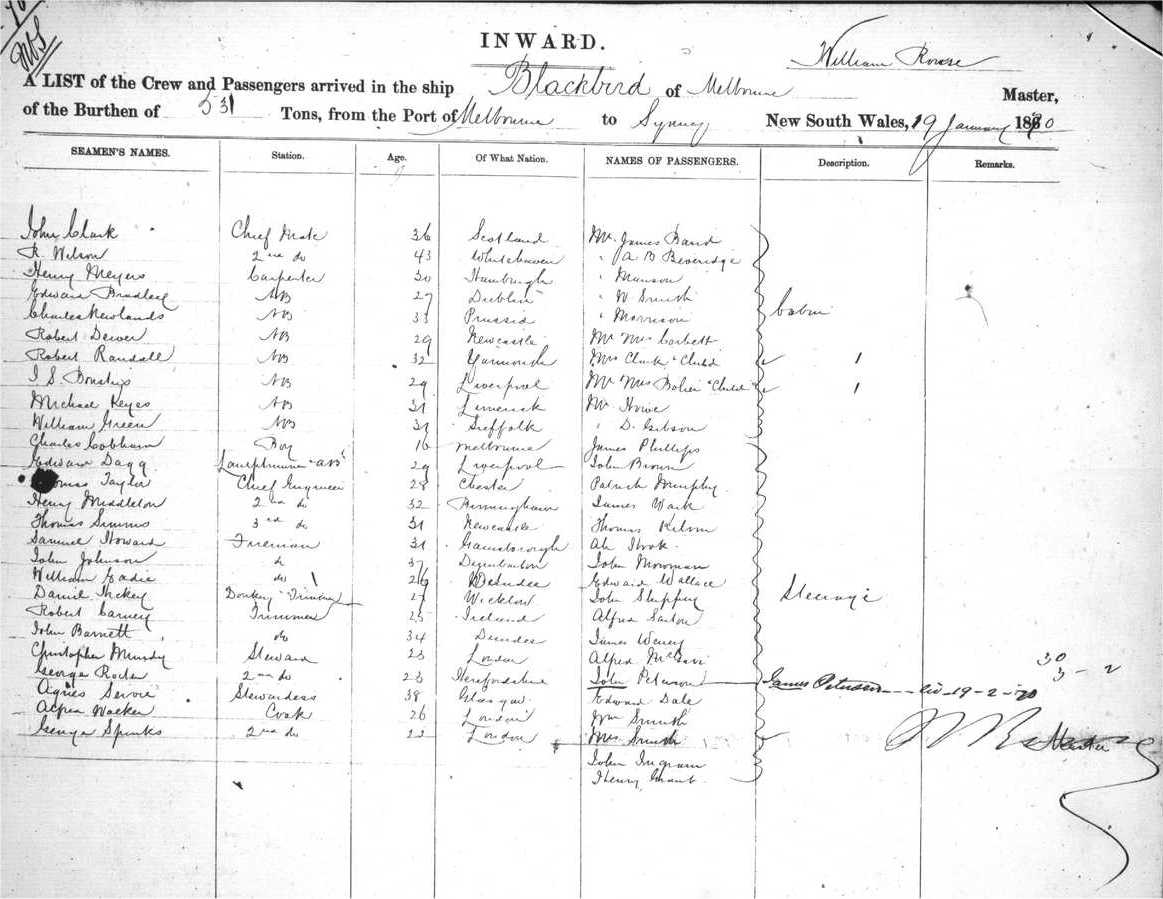 INWARD.
William Rouse
A LIST of the Crew and Passengers arrived in the ship Blackbird of Melbourne Master,
of the Burthen of 531 Tons, from the Port of Melbourne to Sydney New South Wales, 19 January 1870
SEAMEN'S NAMES. Station. Age. Of What Nation. NAMES OF PASSENGERS. Description. Remarks.
John Clark Chief Mate 36 Scotland Mr. James Baird
R. Wilson 2nd do 43 Whitehaven " A B Beveridge
Henry Meyers Carpenter 30 Hamburgh " Manson
Edward Bradley AB 27 Dublin " W Smith
Charles Newlands AB 33 Prussia " Morrison Cabin
Robert Dewer AB 29 Newcastle Mr Mrs Corbett
Robert Randall AB 32 Yarmouth Mrs Clark & Child 1
I. S. AB 29 Liverpool Mr Mrs & Child 1
Michael Keyes AB 31 Limerick Mr Howe
William Green AB 31 Suffolk " D. Gibson
Charles Cobham Boy 16 Melbourne James Phillips
Edward Dagg Lamptrimmer & AB 29 Liverpool John Brown
Thomas Taylor Chief Engineer 28 Chester Patrick Murphy
Henry Middleton 2nd do 32 Birmingham James Wark
Thomas Simms 3rd do 31 Newcastle Thomas
Samuel Howard Fireman 31 Gainsborough Ah Hook
John Johnson do 37 Dumbarton John
William Eadie do 26 Dundee Edward Wallace
Daniel Hickey Donkey & Trimmer 27 Wicklow John Steerage
Robert Carney Trimmer 25 Ireland Alfred
John Barnett do 34 Dundee James
Christopher Mundy Steward 23 London Alfred 30
George 2nd do 23 Herefordshire John Peterson James Peterson 19-2-70 3 - 2
Agnes Stewardess 38 Glasgow Edward Dale
Alfred Walker Cook 26 London Wm Smith
George Spinks 2nd do 22 London Mrs Smith Master
John Ingram
Henry Grant